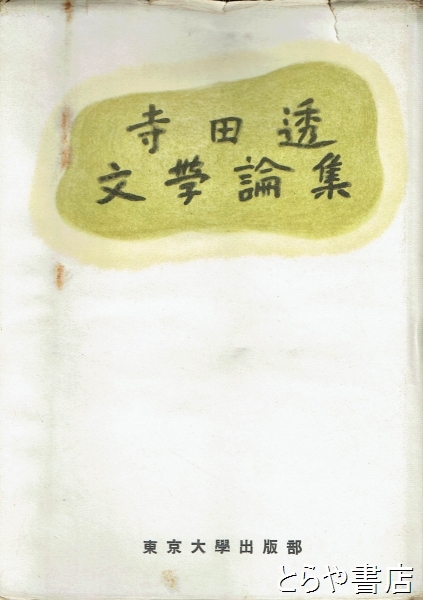 寺田透
文学論集
東京大學出版部
とらや書店